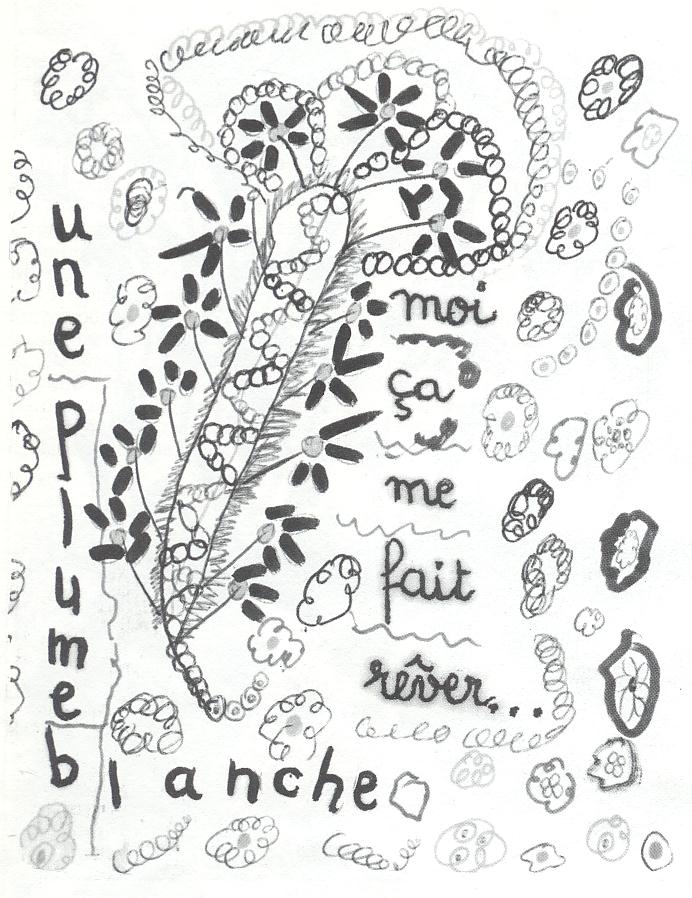 une
plume
blanche
moi
ça
me
fait
rêver...